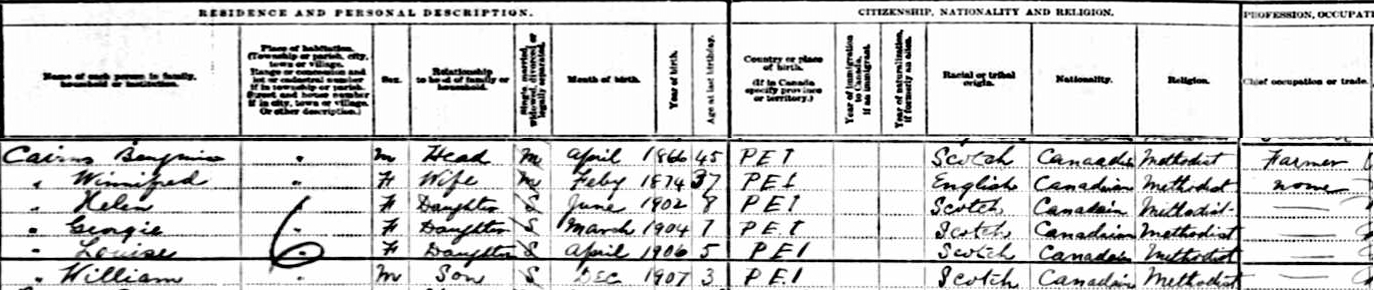 RESIDENCE AND PERSONAL DESCRIPTION. CITIZENSHIP, NATIONALITY AND RELIGION. PROFESSION, OCCUPATI
Name of each person in family, household or institution. Place of habitation. (Township or parish, city, town or village. Range or concession and lot or cadastral number if in township or parish. Street and house number if in city, town or village. Or other description.) Sex. Relationship to head of family or household. Single, married, widowed, divorced or legally separated. Month of birth. Year of birth. Age at last birthday. Country or place of birth. (If in Canada specify province or territory.) Year of immigration to Canada, if an immigrant. Year of naturalization, if formerly an alien. Racial or tribal origin. Nationality. Religion. Chief occupation or trade.
Cairns Benjmin " M Head M April 1866 45 PEI Scotch Canaadin Methodist Farmer
" Winnifred " F Wife M Feby 1874 37 PEI English Canadian Methodist none
" Helen " F Daughter S June 1902 8 PEI Scotch Canadain Methodist —
" Georgie " F Daughter S March 1904 7 PEI Scotch Canadian Methodist —
" Louise 6 F Daughter S April 1906 5 PEI Scotch Canadain Methodist —
" William " M Son S Dec 1907 3 PEI Scotch Canadian Methodist —